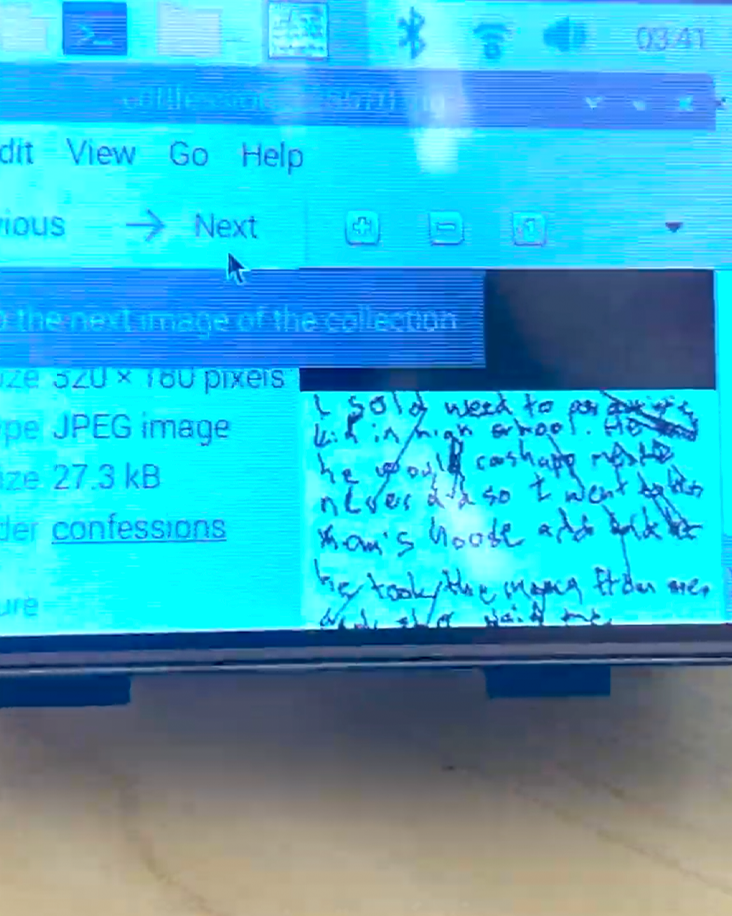 03:41
dit View Go Help
vious → Next
the next image of the collection
ize 320 × 180 pixels
ype JPEG image
ize 27.3 kB
der confessions
ure
I sold weed to
kid in high school. He
he would cashapp
never did so I went to his
mom's house and told
he took the money from her
and she paid me.